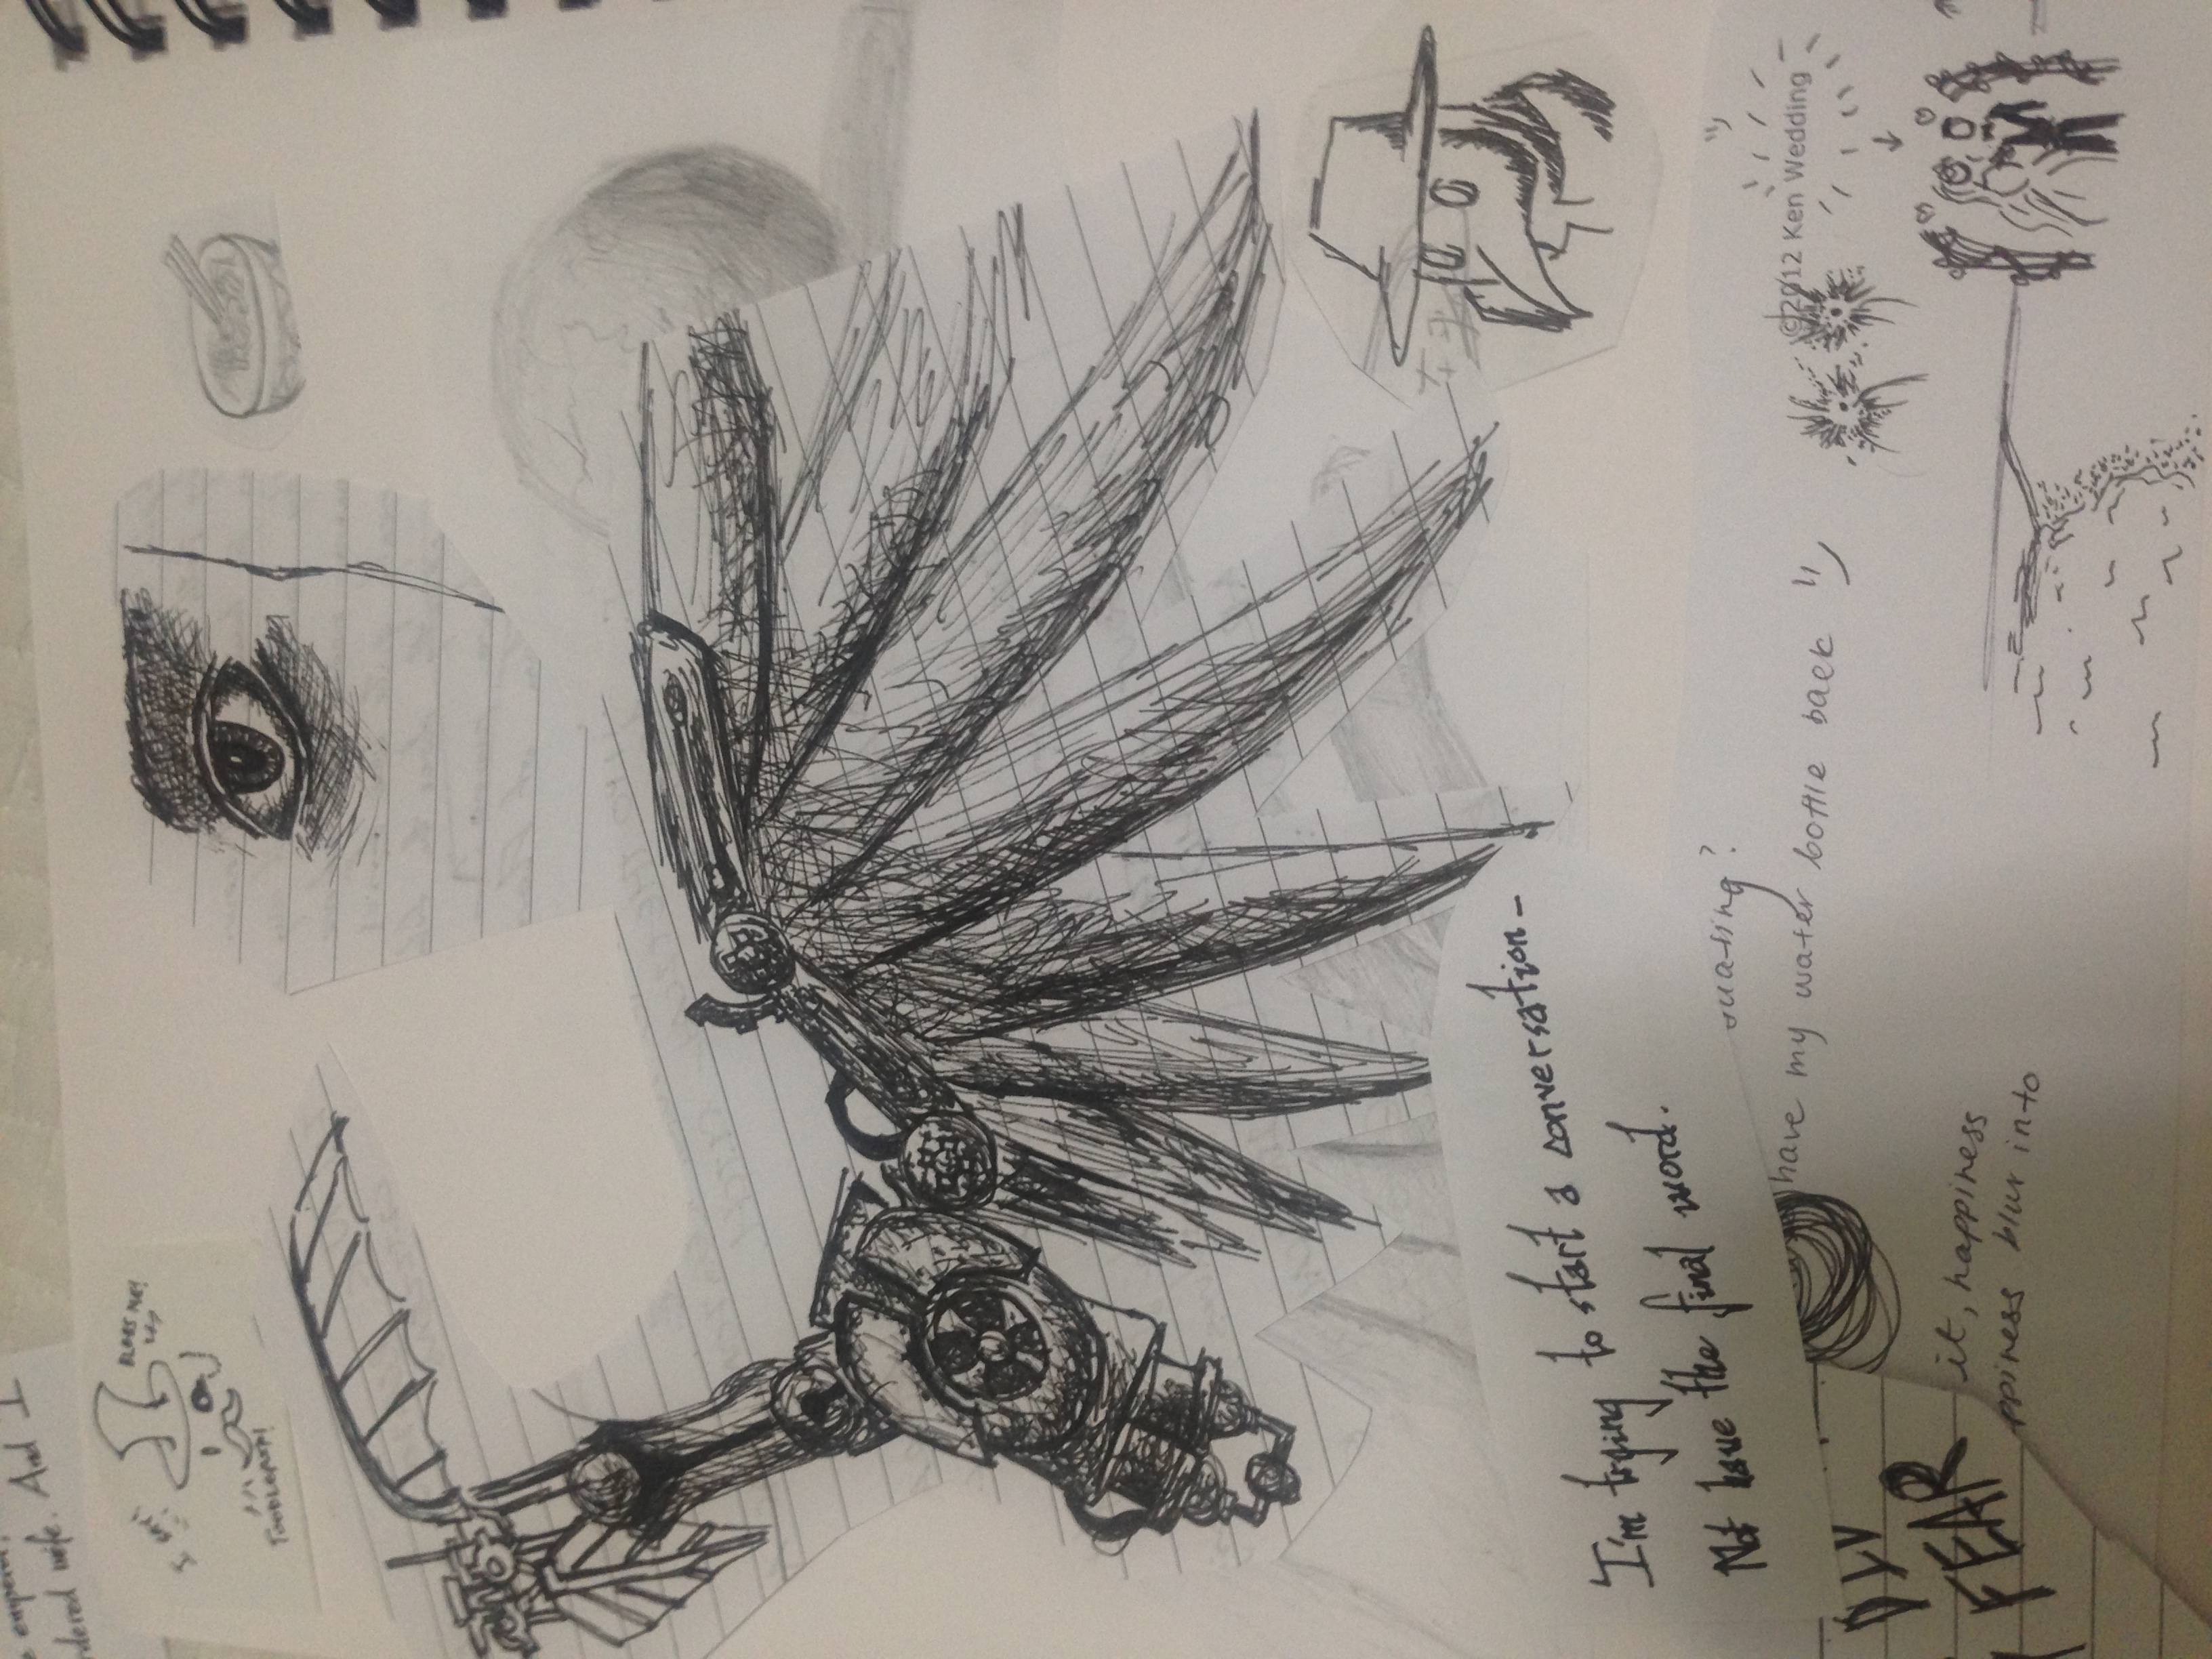 e emperor,
rdered wife. And I
I SAY!
BLESS ME!
TOODLEPIP!
I'm trying to start a conversation_
Not have the final word.
uating?
have my water bottle back
©2012 Ken Wedding
DIV
FEAR
it, happiness
ppiness blur into